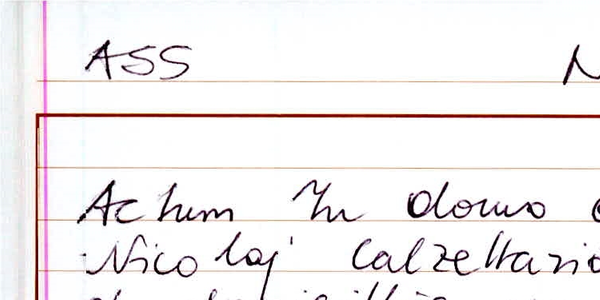 ASS N
Actum In domo
Nicolaj Calzettario